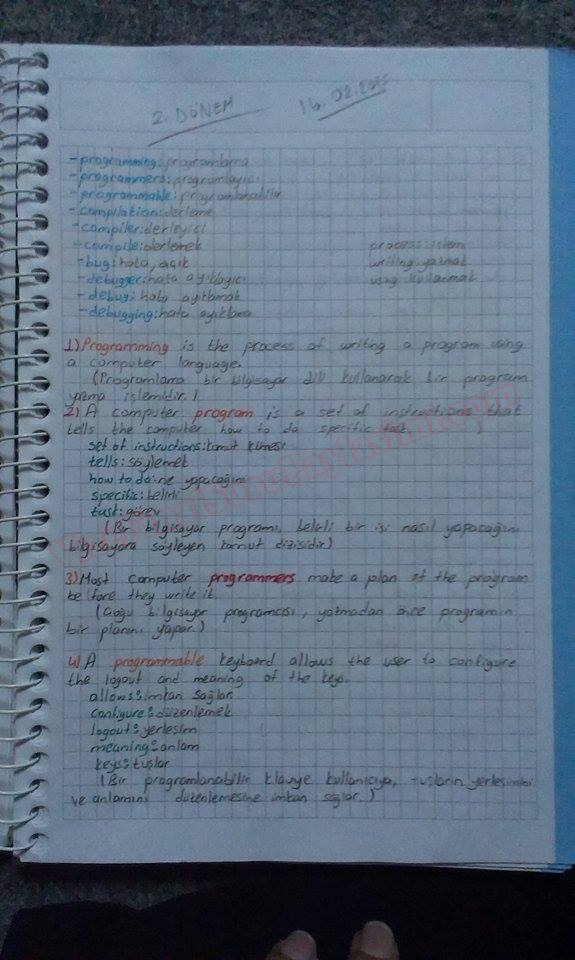 2. DÖNEM 16.02.2015
- programming: programlama
- programmers: programlayıcı
- programmable: programlanabilir
- compilation: derleme
- compiler: derleyici
- compile: derlemek process: işlem
- bug: hata, açık writing: yazmak
- debugger: hata ayıklayıcı using: kullanmak
- debug: hata ayıklamak
- debugging: hata ayıklama
1) Programming is the process of writing a program using
a computer language.
(Programlama bir bilgisayar dili kullanarak bir program
yazma işlemidir.)
2) A computer program is a set of instructions that
tells the computer how to do specific task.
set of instructions: komut kümesi
tells: söylemek
how to do: ne yapacağını
specific: belirli
task: görev
(Bir bilgisayar programı, belirli bir işi nasıl yapacağını
bilgisayara söyleyen komut dizisidir)
3) Most computer programmers make a plan of the program
be(fore they write it.
(Çoğu bilgisayar programcısı, yazmadan önce programın
bir planını yapar.)
4) A programmable keyboard allows the user to configure
the logout and meaning of the keys.
allows: imkan sağlar
configure: düzenlemek
logout: yerleşim
meaning: anlam
keys: tuşlar
(Bir programlanabilir klavye kullanıcıya, tuşların yerleşimini
ve anlamını düzenlemesine imkan sağlar.)